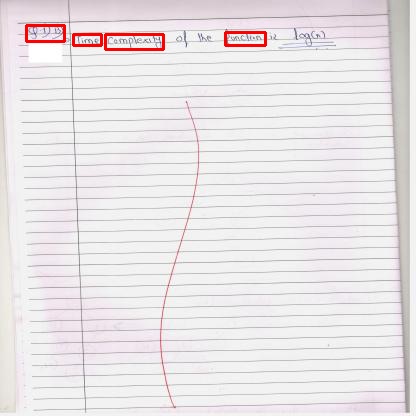 Time Complexity of the function is log(n)